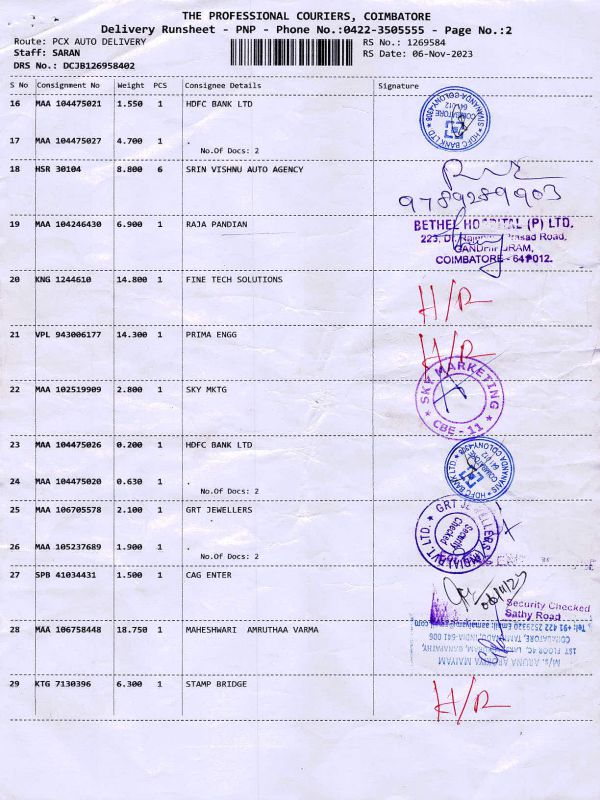 THE PROFESSIONAL COURIERS, COIMBATORE
Delivery Runsheet - PNP - Phone No.:0422-3505555 - Page No.:2
Route: PCX AUTO DELIVERY RS No.: 1269584
Staff: SARAN RS Date: 06-Nov-2023
DRS No.: DCJB126958402
S No Consignment No Weight PCS Consignee Details Signature
16 MAA 104475021 1.550 1 HDFC BANK LTD
HDFC BANK LTD * SIVANANDA COLONY-4308 *
COIMBATORE
641 012
17 MAA 104475027 4.700 1 .
No.Of Docs: 2
18 HSR 30104 8.800 6 SRIN VISHNU AUTO AGENCY
9789289903
19 MAA 104246430 6.900 1 RAJA PANDIAN
BETHEL HOSPITAL (P) LTD.
223, Dr. Rajendra Prasad Road,
GANDHIPURAM,
COIMBATORE - 641012.
20 KNG 1244610 14.800 1 FINE TECH SOLUTIONS
H/R
21 VPL 943006177 14.300 1 PRIMA ENGG
H/R
22 MAA 102519909 2.800 1 SKY MKTG
SKY MARKETING
* CBE - 11 *
23 MAA 104475026 0.200 1 HDFC BANK LTD
HDFC BANK LTD * SIVANANDA COLONY-4308 *
COIMBATORE
641 012
24 MAA 104475020 0.630 1 .
No.Of Docs: 2
25 MAA 106705578 2.100 1 GRT JEWELLERS
GRT JEWELLERS (INDIA) PVT. LTD. *
Security
Checked
26 MAA 105237689 1.900 1 .
No.Of Docs: 2
27 SPB 41034431 1.500 1 CAG ENTER
06/11/23
Security Checked
Sathy Road
28 MAA 106758448 18.750 1 MAHESHWARI AMRUTHAA VARMA
M/s. ARUNA AROKYA MAIYAM
COIMBATORE, TAMILNADU, INDIA-641 006
29 KTG 7130396 6.300 1 STAMP BRIDGE
H/R